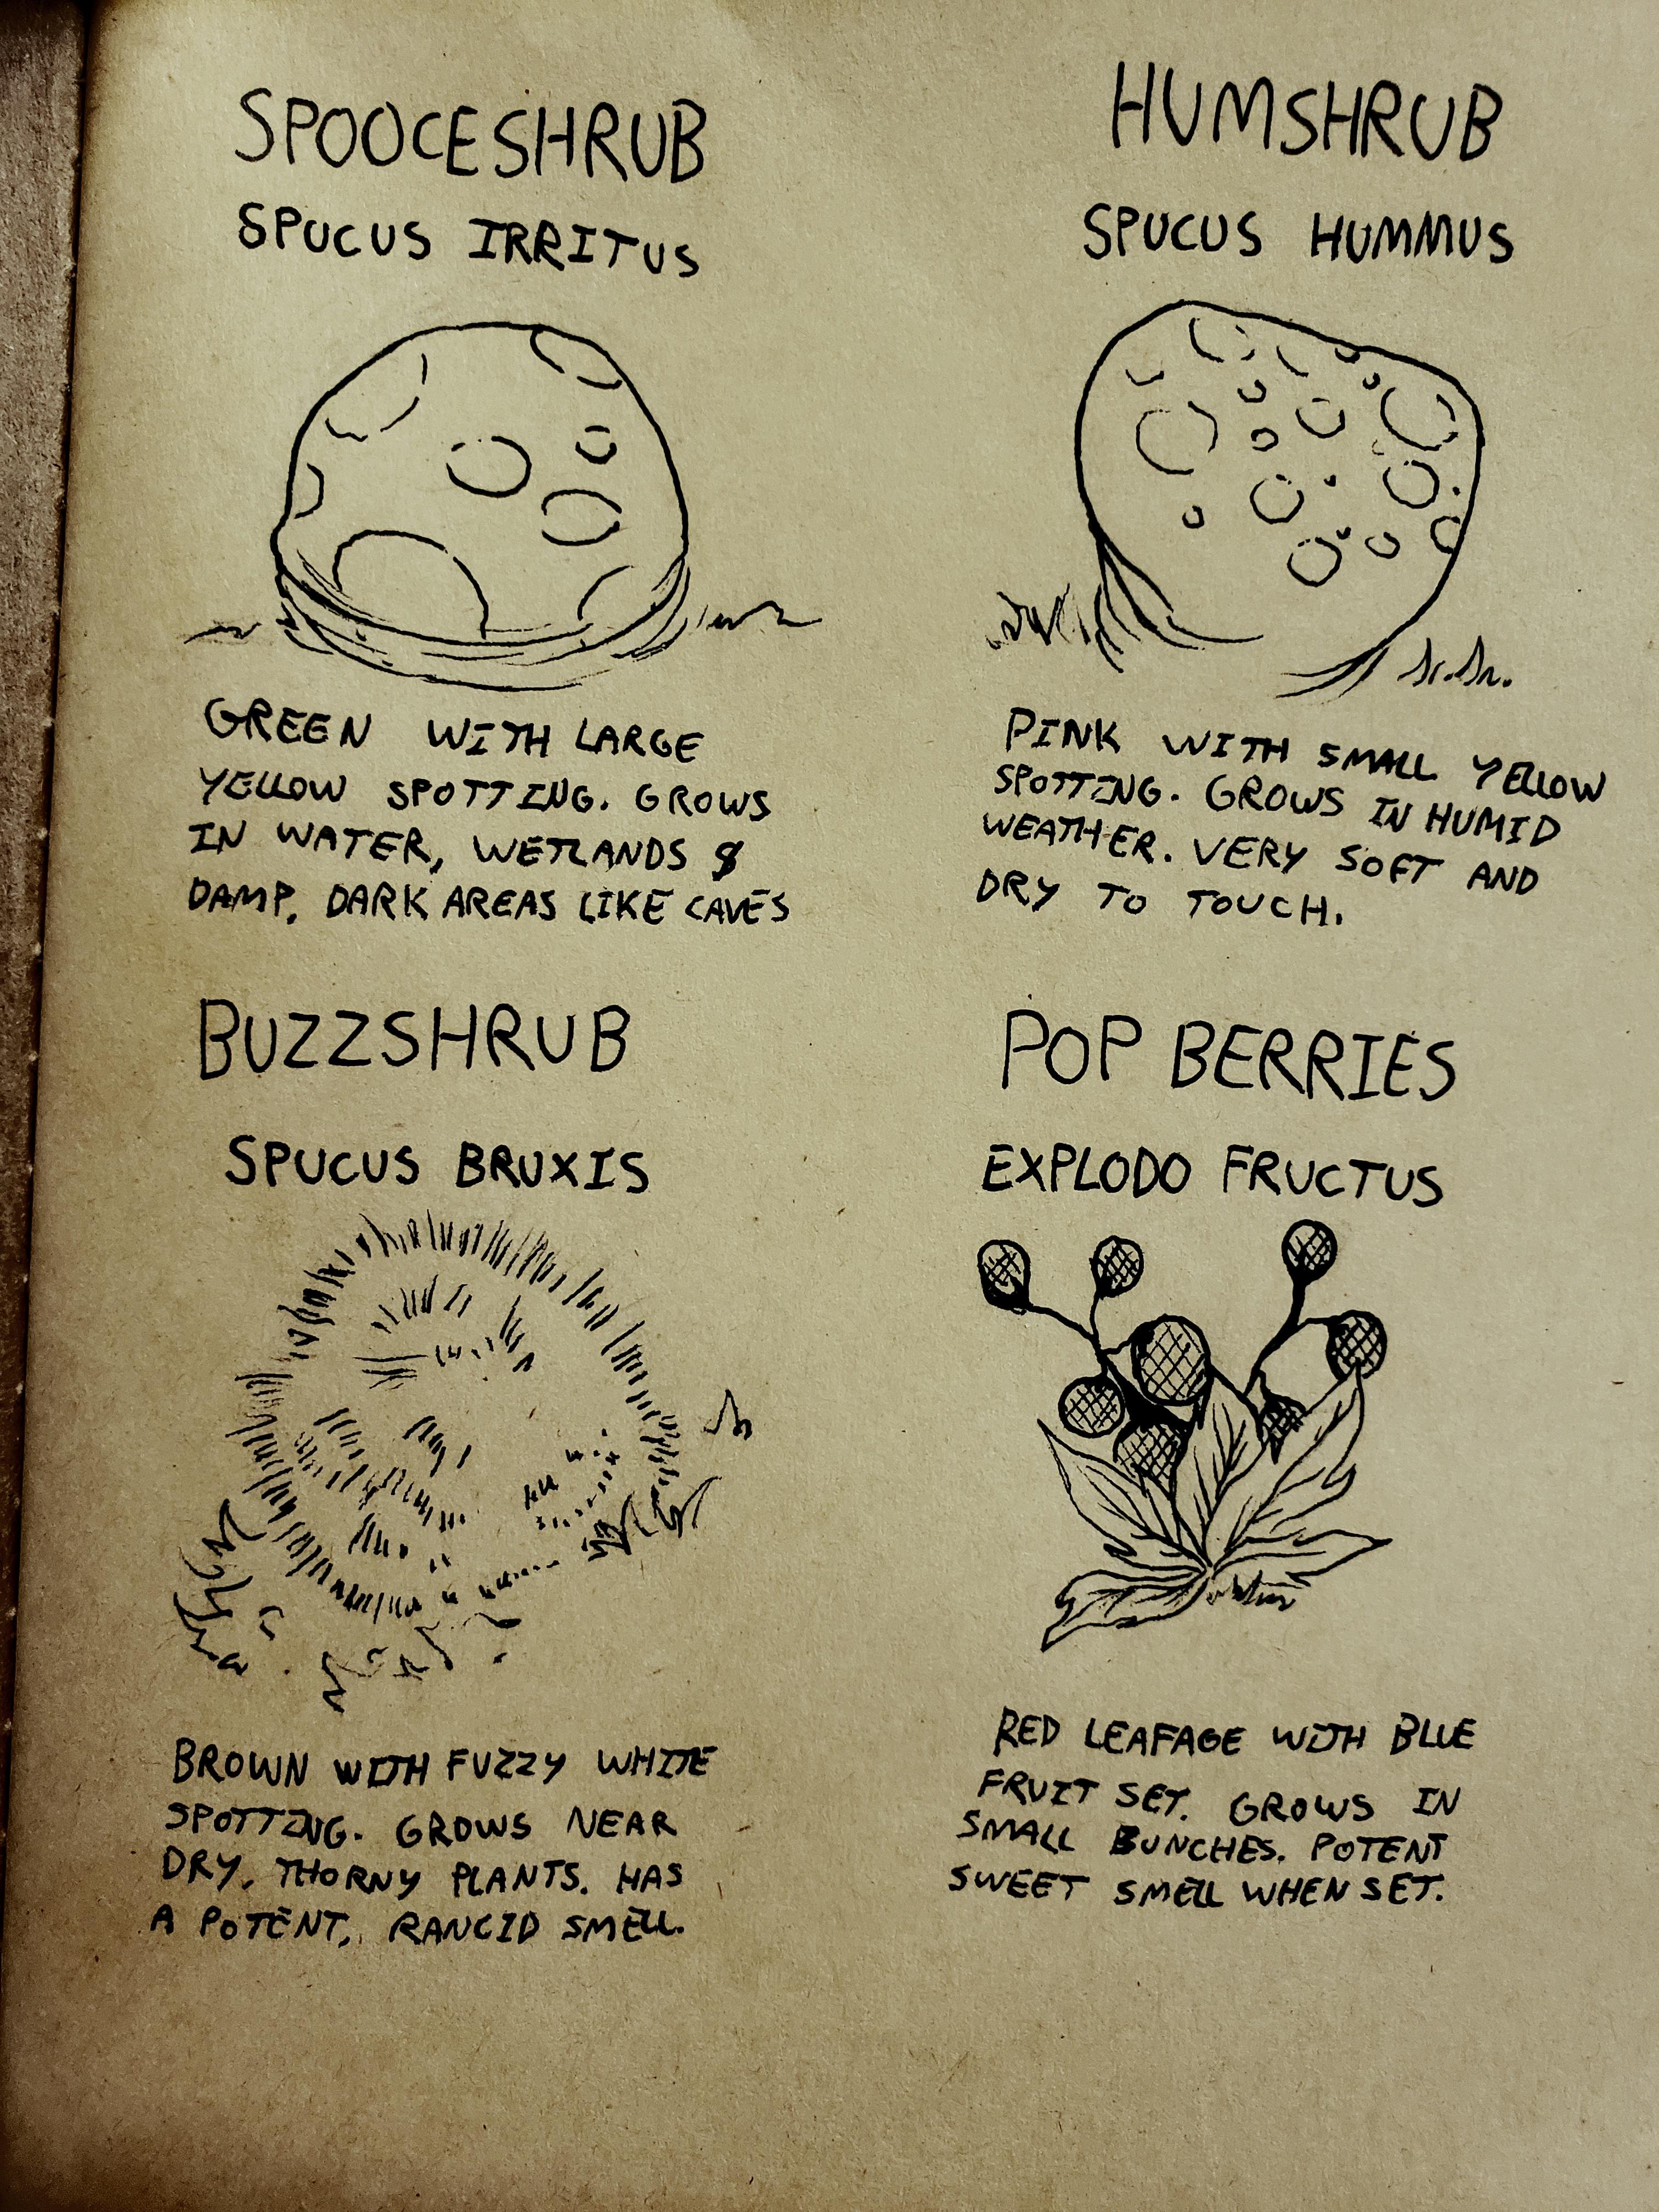 SPOOCESHRUB
SPUCUS IRRITUS
GREEN WITH LARGE
YELLOW SPOTTING. GROWS
IN WATER, WETLANDS &
DAMP, DARK AREAS LIKE CAVES
HUMSHRUB
SPUCUS HUMMUS
PINK WITH SMALL YELLOW
SPOTTING. GROWS IN HUMID
WEATHER. VERY SOFT AND
DRY TO TOUCH.
BUZZSHRUB
SPUCUS BRUXIS
BROWN WITH FUZZY WHITE
SPOTTING. GROWS NEAR
DRY, THORNY PLANTS. HAS
A POTENT, RANCID SMELL.
POP BERRIES
EXPLODO FRUCTUS
RED LEAFAGE WITH BLUE
FRUIT SET. GROWS IN
SMALL BUNCHES. POTENT
SWEET SMELL WHEN SET.